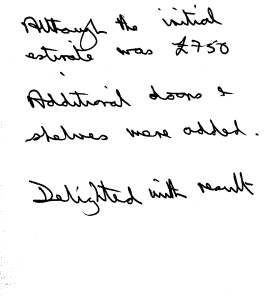 Although the initial
estimate was £750
Additional doors &
shelves were added.
Delighted with result